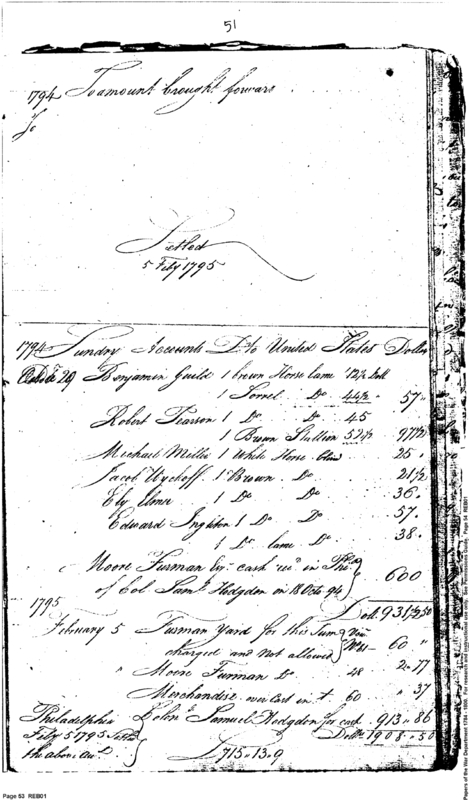 51
1794 To amount brought forward
To
Settled
5 Feby 1795
1794 Sundry Accounts Dr to United States Dollars
Octobr 29 Benjamin Guild 1 brown Horse lame 12½ Doll
1 Sorrel Do 44½ " 57 "
Robert Pearson 1 Do . Do . 45
1 Brown Stallion 52½ 97½
Michael Mills 1 White Horse blind 25 "
Jacob Wyckoff 1 Brown Do 21½
Ely Elmer 1 Do Do 36 .
Edward Inghton 1 Do Do 57 .
1 Do lame Do 38 .
Moore Furman by cash recd in Phila
of Col Saml Hodgdon on 18 Octo 94 } 600
1795 Doll. 931/2 50
February 5 Furman Yard for this Sum
charged and Not allowed } 60 "
" Moore Furman Do 48 2 " 77
Merchandize over Cast in + 60 " 37
Philadelphia Colonl Samuel Hodgdon for cash 913 " 86
Feby 5 1795 Settled Dolls 1908 " 50
the above
£ 715 - 13 - 9
Page 53 REB01
Papers of the War Department 1784 - 1800.